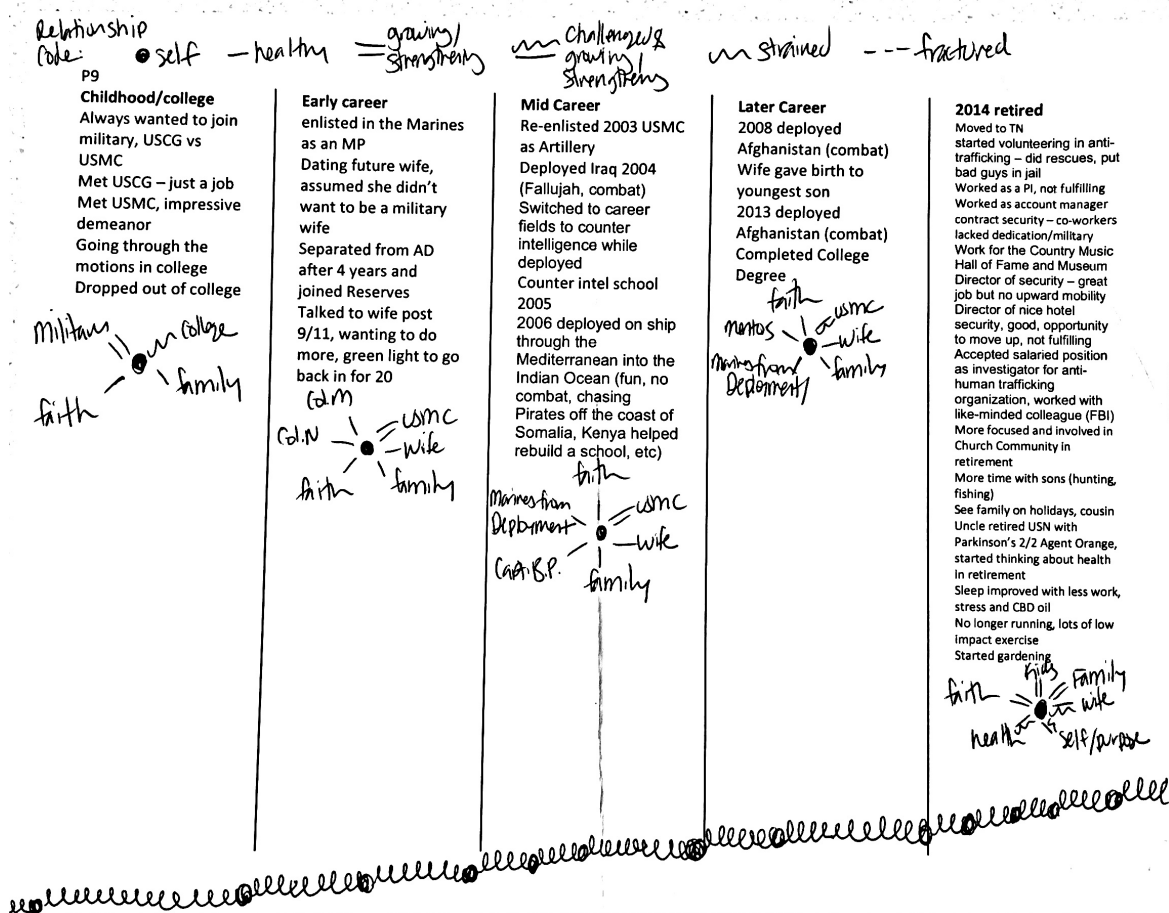 Relationship
Code:
self
healthy
growing/
strengthening
Challenged &
growing/
strengthening
strained
fractured
P9
Childhood/college
Always wanted to join
military, USCG vs
USMC
Met USCG – just a job
Met USMC, impressive
demeanor
Going through the
motions in college
Dropped out of college
military
college
family
faith
Early career
enlisted in the Marines
as an MP
Dating future wife,
assumed she didn't
want to be a military
wife
Separated from AD
after 4 years and
joined Reserves
Talked to wife post
9/11, wanting to do
more, green light to go
back in for 20
Col.M
Col.N
USMC
wife
faith
family
Mid Career
Re-enlisted 2003 USMC
as Artillery
Deployed Iraq 2004
(Fallujah, combat)
Switched to career
fields to counter
intelligence while
deployed
Counter intel school
2005
2006 deployed on ship
through the
Mediterranean into the
Indian Ocean (fun, no
combat, chasing
Pirates off the coast of
Somalia, Kenya helped
rebuild a school, etc)
faith
Marines from
Deployment
USMC
wife
Capt. B.P.
family
Later Career
2008 deployed
Afghanistan (combat)
Wife gave birth to
youngest son
2013 deployed
Afghanistan (combat)
Completed College
Degree
faith
USMC
wife
Marines from
Deployment
family
2014 retired
Moved to TN
started volunteering in anti-
trafficking – did rescues, put
bad guys in jail
Worked as a PI, not fulfilling
Worked as account manager
contract security – co-workers
lacked dedication/military
Work for the Country Music
Hall of Fame and Museum
Director of security – great
job but no upward mobility
Director of nice hotel
security, good, opportunity
to move up, not fulfilling
Accepted salaried position
as investigator for anti-
human trafficking
organization, worked with
like-minded colleague (FBI)
More focused and involved in
Church Community in
retirement
More time with sons (hunting,
fishing)
See family on holidays, cousin
Uncle retired USN with
Parkinson's 2/2 Agent Orange,
started thinking about health
in retirement
Sleep improved with less work,
stress and CBD oil
No longer running, lots of low
impact exercise
Started gardening
Kids
Family
faith
wife
health
self/purpose